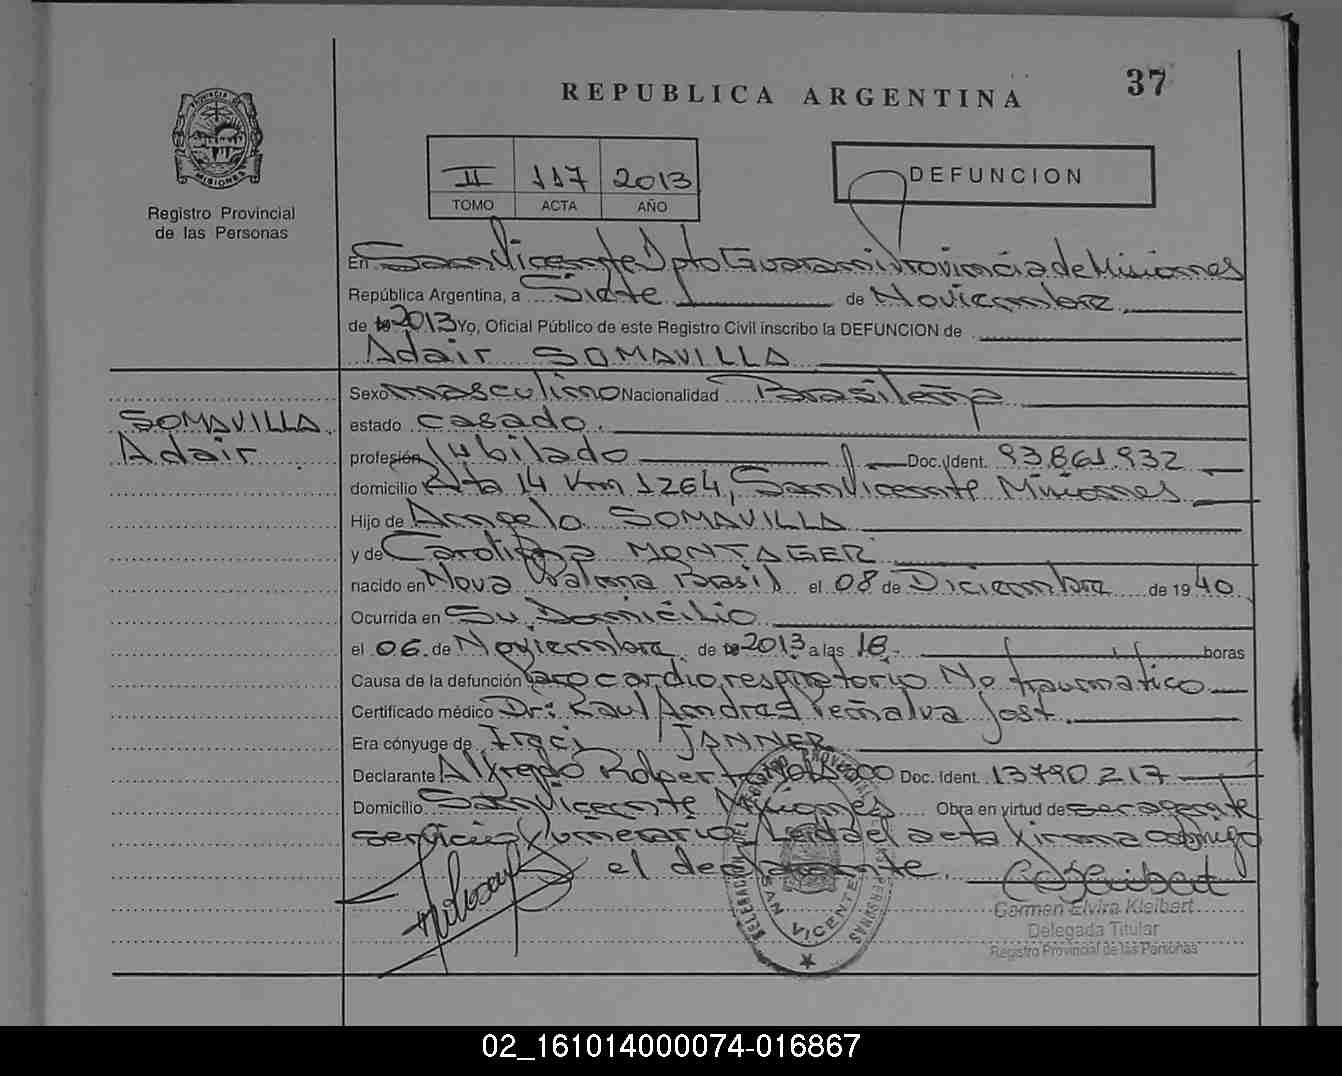 REPUBLICA ARGENTINA
37
PROVINCIA DE MISIONES
Registro Provincial
de las Personas
II 117 2013
TOMO ACTA AÑO
DEFUNCION
En San Vicente Dpto Guarani Provincia de Misiones
República Argentina, a Siete de Noviembre
de 19 2013 Yo, Oficial Público de este Registro Civil inscribo la DEFUNCION de
Adair SOMAVILLA
SOMAVILLA
Adair
Sexo masculino Nacionalidad Brasileña
estado casado
profesión Jubilado Doc. Ident. 93.861.932
domicilio Ruta 14 Km 1264, San Vicente Misiones
Hijo de Angelo SOMAVILLA
y de Carolina MONTAGER
nacido en Nova Palma Brasil el 08 de Diciembre de 19 40
Ocurrida en Su Domicilio
el 06 de Noviembre de 19 2013 a las 18 horas
Causa de la defunción paro cardiorespiratorio No traumático
Certificado médico Dr: Raul Andres Peñalva Jost
Era cónyuge de Iraci JANNER
Declarante Alfredo Roberto Doc. Ident. 13790217
Domicilio San Vicente Misiones Obra en virtud de ser agente
servicio funerario Leida el acta firma conmigo
el declarante.
DELEGACION DEL REGISTRO PROVINCIAL DE LAS PERSONAS
SAN VICENTE
Carmen Elvira Kleibert
Delegada Titular
Registro Provincial de las Personas
02_161014000074-016867